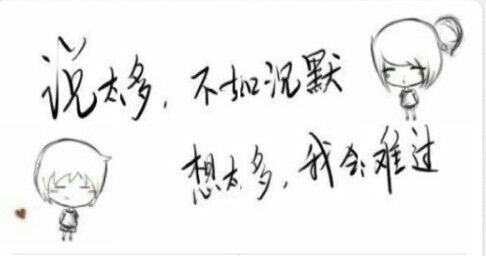 说太多，不如沉默
想太多，我会难过